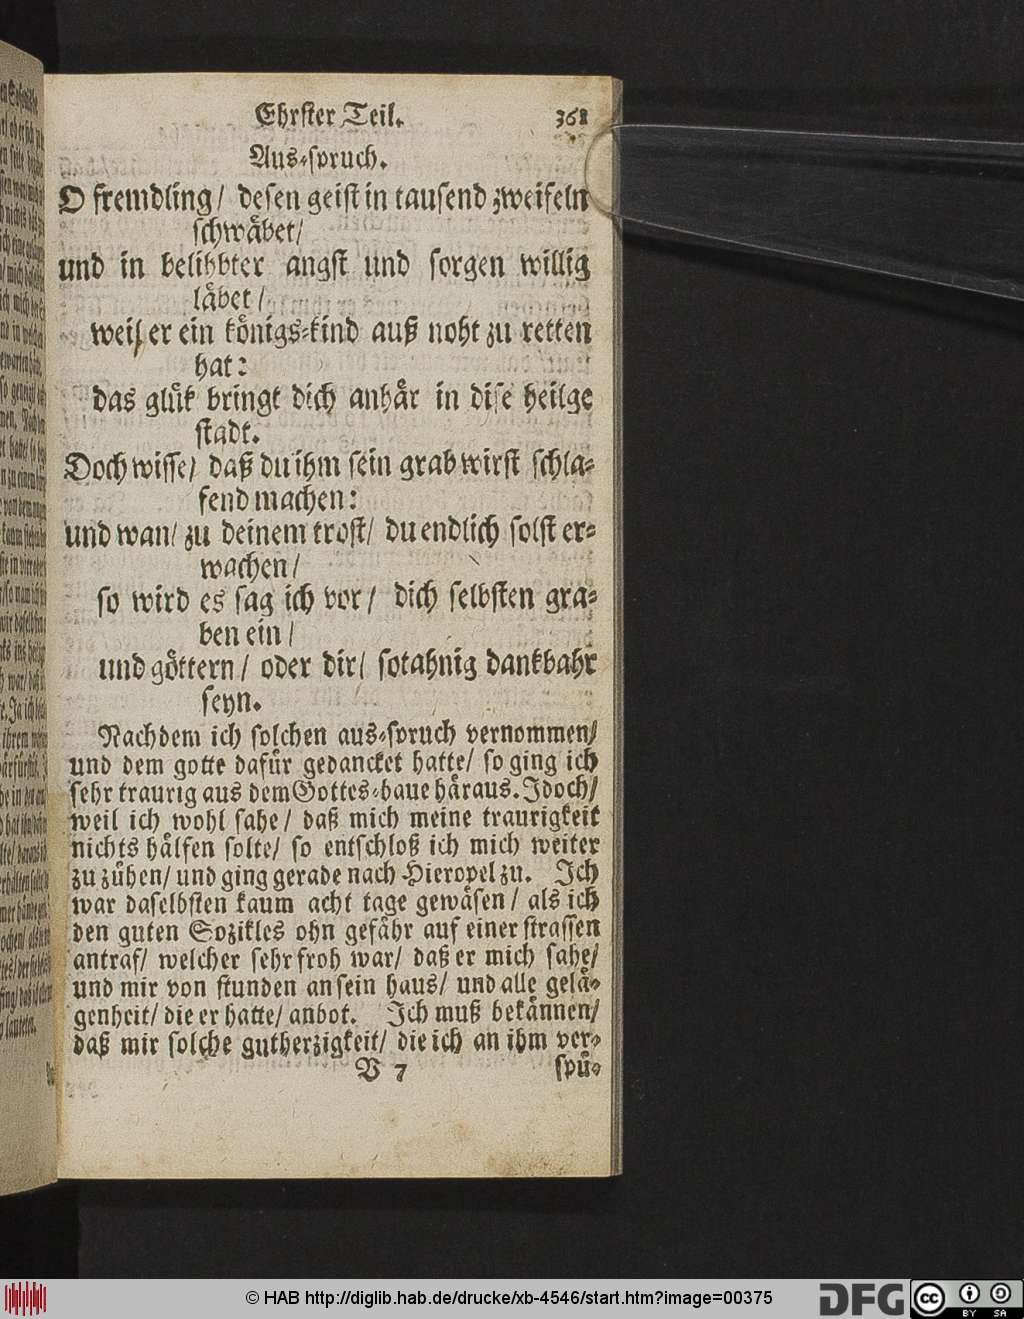 Ehrster Teil. 361
Aus-spruch.
O fremdling/ desen geist in tausend zweifeln
schwäbet/
und in belihbter angst und sorgen willig
läbet/
weil er ein königs-kind auß noht zu retten
hat:
das glük bringt dich anhär in dise heilge
stadt.
Doch wisse/ daß du ihm sein grab wirst schla-
fend machen:
und wan/ zu deinem trost/ du endlich solst er-
wachen/
so wird es sag ich vor/ dich selbsten gra-
ben ein/
und göttern/ oder dir/ sotahnig dankbahr
seyn.
Nachdem ich solchen aus-spruch vernommen/
und dem gotte dafür gedancket hatte/ so ging ich
sehr traurig aus dem Gottes-haue häraus. Idoch/
weil ich wohl sahe/ daß mich meine traurigkeit
nichts hälfen solte/ so entschloß ich mich weiter
zu zühen/ und ging gerade nach Hieropel zu. Ich
war daselbsten kaum acht tage gewäsen/ als ich
den guten Sozikles ohn gefähr auf einer strassen
antraf/ welcher sehr froh war/ daß er mich sahe/
und mir von stunden an sein haus/ und alle gelä-
genheit/ die er hatte/ anbot. Ich muß bekännen/
daß mir solche gutherzigkeit/ die ich an ihm ver-
V 7 spü-
© HAB http://diglib.hab.de/drucke/xb-4546/start.htm?image=00375
DFG
cc BY SA